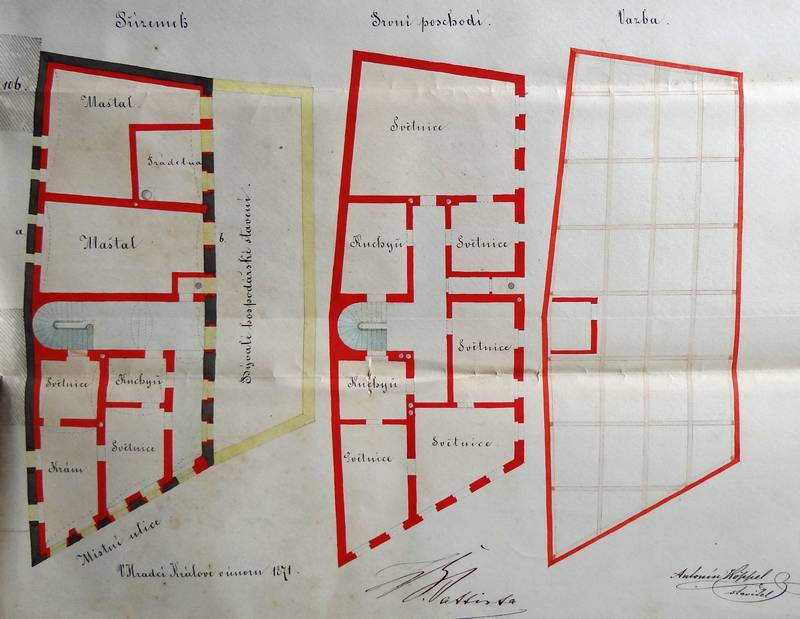 Přízemek
První poschodí.
Vazba.
106.
Maštal
Prádelna
a
Maštal
b.
Bývalé hospodářské stavení.
Světnice
Kuchyň
Světnice
Krám
Místní ulice
Světnice
Kuchyň
Světnice
Světnice
Kuchyň
Světnice
Světnice
V Hradci Králové v únoru 1871.
Antonín Höppel
stavitel